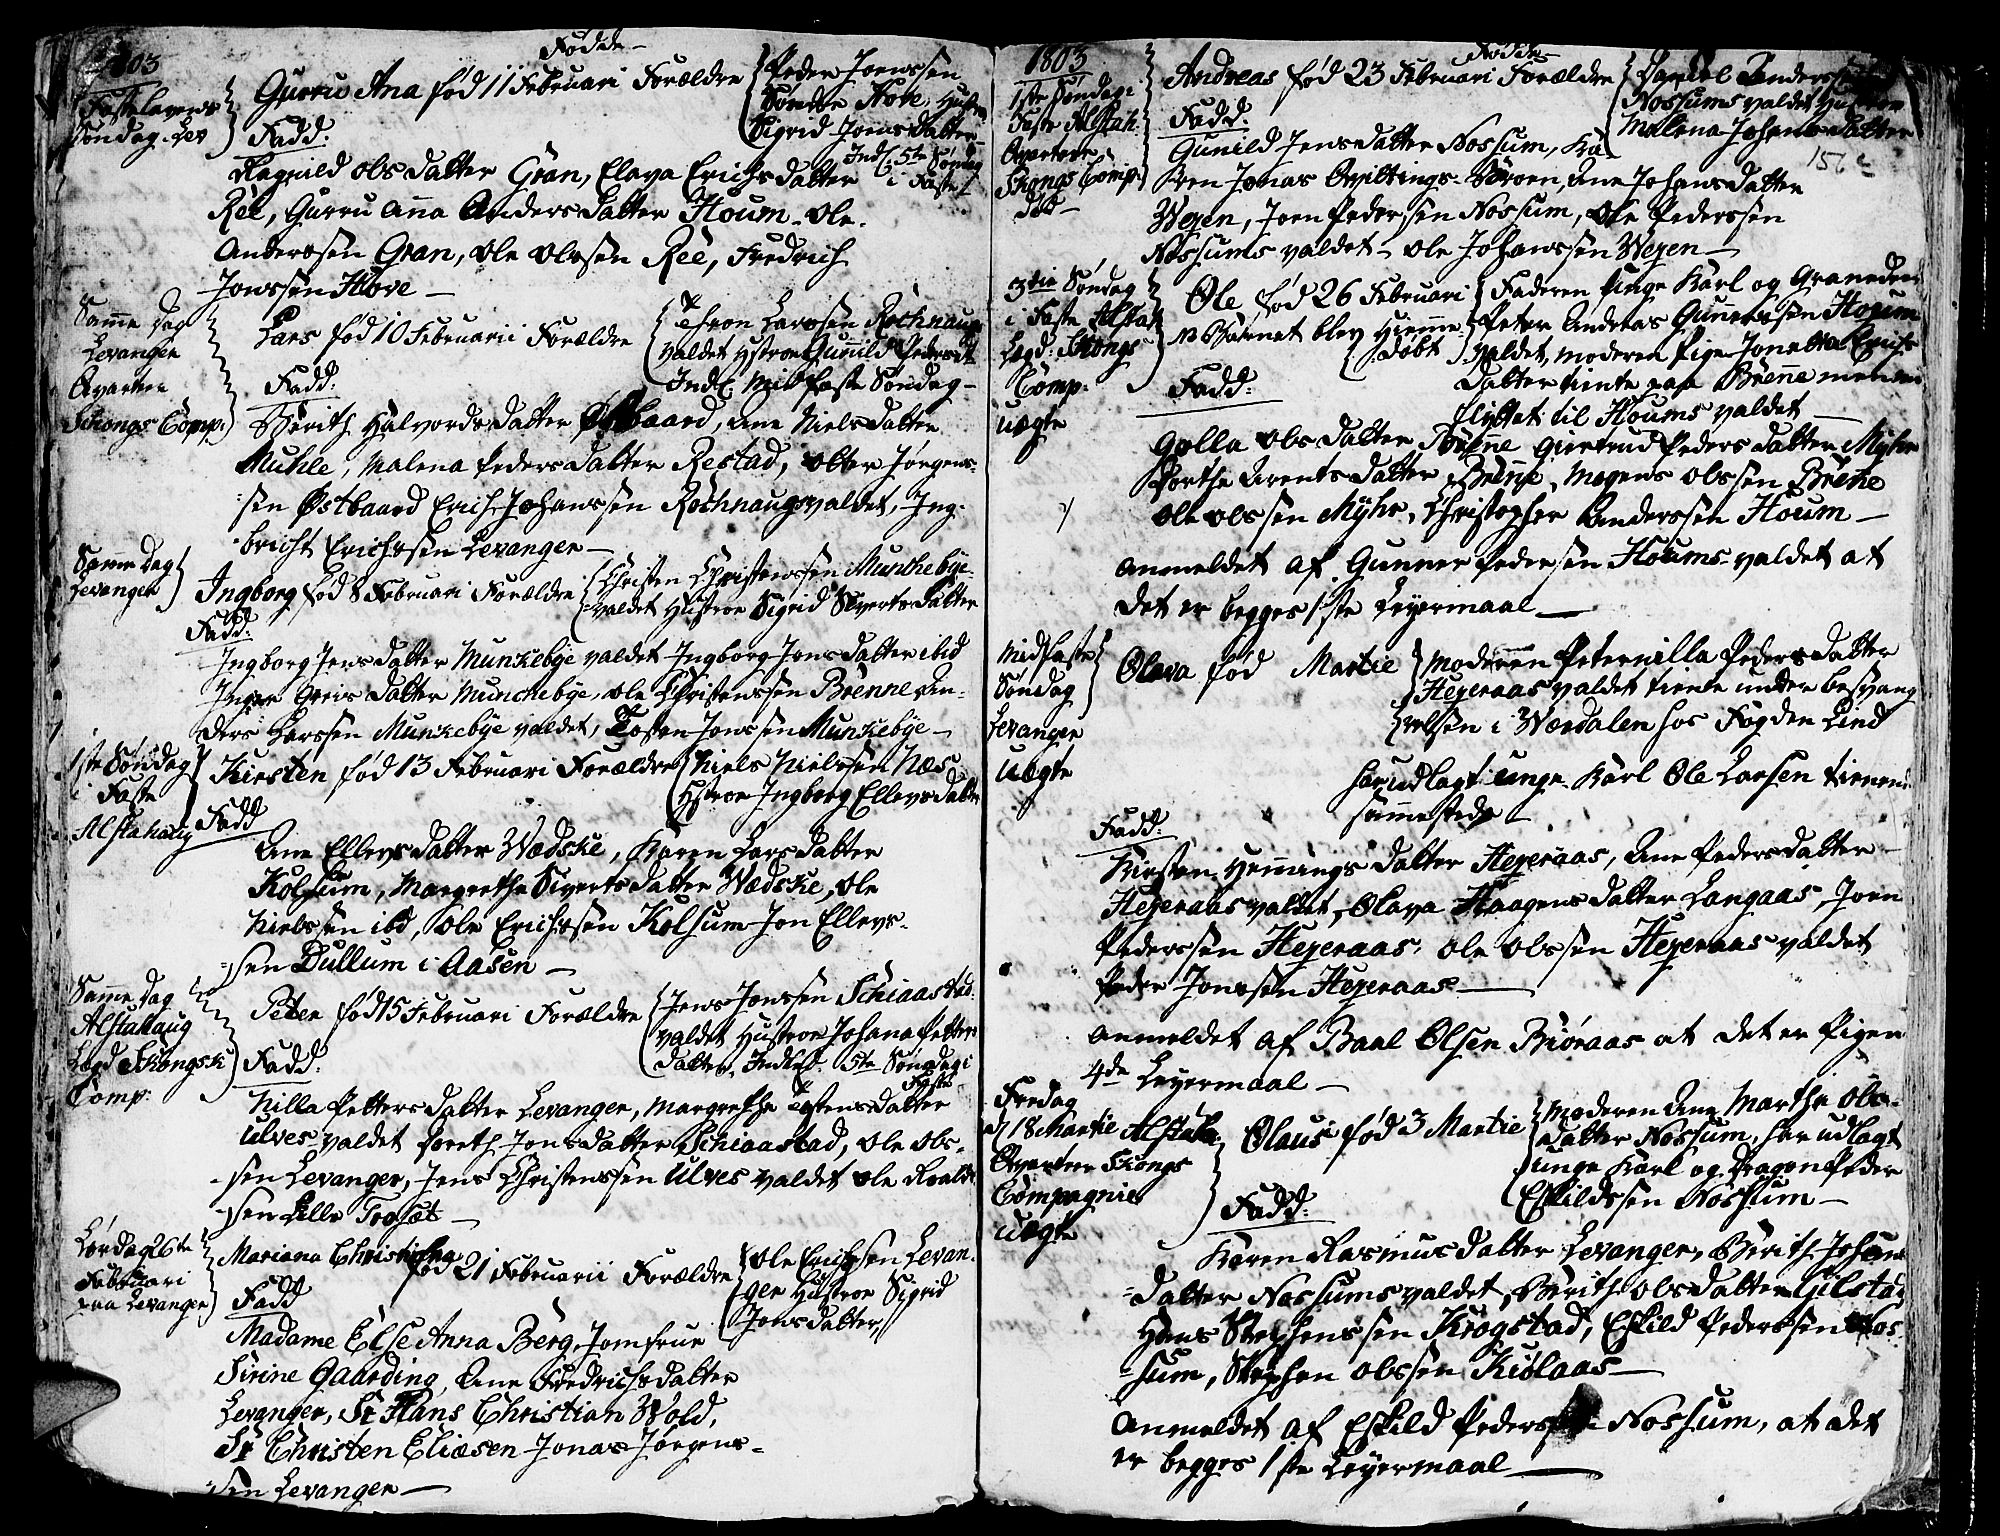 1803
Fødde
Fastelavens
Søndag Lev
Gurru Ana fød 11 Februari Forældre
Peder Joenssen
Søndre Hove, Hustroe
Sigrid Joens Datter
Indl: 5te Søndag
i Faste
Fadd:
Ragnild Ols Datter Gran, Elava Erichs Datter
Ree, Gurru Anna Anders Datter Houm, Ole
Anderssen Gran, Ole Olssen Ree, Fredrich
Jonssen Hove
Samme Dag
Levanger
Qvarteer
Skongs Comp:
Lars fød 10 Februarii Forældre
Thron Larssen Rochnaugs
valdet Hstroe Gunnild Peders D:
Indl: Midfaste Søndag
Fadd:
Berith Halvords Datter Østbaard, Ane Niels Datter
Muhle, Malena Peders Datter Restad, Peter Jørgens-
sen Østbaard Erich Johanssen Rochnaugsvaldet, Ing-
bricht Erichssen Levanger
Samme Dag
Levanger
Ingborg fød 8 Februari Forældre
Christen Christenssen Munchebye
valdet Hustroe Sigrid Siverts Datter
Fadd:
Ingborg Jens Datter Munkebye valdet Ingborg Jons Datter ibid
Inger Greis Datter Munchebye, Ole Christenssen Brenne An-
ders Larssen Munkebye valdet, Tosten Jonssen Munkebye
1ste Søndag
i Faste
Alstahaug
Kirsten fød 13 Februari Forældre
Niels Nielssen Næs
Hstroe Ingborg Ellevs Datter
Fadd
Ane Ellevs Datter Wædske, Karen Lars Datter
Kolsum, Margrethe Siverts Datter Wædske, Ole
Nielssen ibd, Ole Erichssen Kolsum Jon Ellevs-
sen Dullum i Aasen
Samme Dag
Alstahaug
Lægd Skongsk
Comp:
Peter fød 15 Februari Forældre
Jens Jonssen Schiaastad
valdet Hustroe Johana Petters
Datter, Indled. 5te Søndag i
Faste
Fadd:
Nilla Petters Datter Levanger, Margrethe Tostens Datter
Ulves valdet Marith Jons Datter Schiaastad, Ole Ols-
sen Levanger, Jens Christenssen Ulves valdet Ole Roalds
sen Lille Togsæt
Lørdag 26te
Februari
paa Levanger
Mariana Christina
fød 21 Februarii Forældre
Ole Erichssen Levan-
ger Hustroe Sigrid
Jons Datter
Fadd
Madame Else Anna Berg, Jomfrue
Sirine Gaarding, Ane Fredrichs Datter
Levanger, Sr Hans Christian Wold,
Sr Christen Eliæsen Jonas Jørgens-
sen Levanger
1803
Fødde
1ste Søndag i
Faste Alstah.
Qvarteer
Skongs Comp:
Andreas fød 23 Februari Forældre
Daniel Anderssen
Nossums valdet Hustroe
Malena Johans Datter
151
Fadd:
Gunild Jens Datter Nossum, Ka-
ren Jonas Datter, Ane Johans Datter
Wegen, Joen Pederssen Nossum, Ole Pederssen
Nossums valdet, Ole Johanssen Wegen
3die Søndag
i Faste Alstah
Lægd: Skongs
Comp:
uægte
Ole fød 26 Februari
NB Barnet blev Hiemme
Døbt
Faderen unge Karl og Granadeer
Peter Andreas Gunnerssen Houm
valdet, moderen Pige Jonetta Erichs
Datter tiente paa Brenne men nu
flyttet til Houms valdet
Fadd:
Golla Ols Datter Brenne Giertrud Peders Datter Myhr
Dorthe Arents Datter Brenne, Mogens Olssen Brenne
Ole Olssen Myhr, Christopher Anderssen Houm
Anmeldet af Gunner Pedersen Houms valdet at
det er begges 1ste Leyermaal
Midfaste
Søndag
Levanger
uægte
Olava fød Martie
Moderen Peternilla Peders Datter
Hegeraas valdet tiente under besvang
relsen i Wærdalen hos Fogden Lind
har udlagt unge Karl Ole Larsen tienende
sammestæds
Fadd:
Kirsten Hemmings Datter Hegeraas, Ane Peders Datter
Hegeraas valdet, Olava Haagens Datter Langaas, Joen
Pederssen Hegeraas, Ole Olssen Hegeraas valdet
Peder Jonssen Hegeraas
Anmeldet af Baal Olsen Biøraas at det er Pigen
4de Leyermaal
Fredag
18 Martie Alstah
Qvarteer Skongs
Compagnie
uægte
Olaus fød 3 Martie
Moderen Ane Marthe Ols-
Datter Nossum, har udlagt
unge Karl og Dragon Peder
Eskildssen Nossum
Fadd:
Karen Rasmus Datter Levanger, Berith Johans
Datter Nossums valdet, Berith Ols Datter Gilstad
Hans Stephenssen Krogstad, Eskild Pederssen Nos-
sum, Stephen Olssen Kislaas
Anmeldet af Eskild Pedersen Nossum, at det
er begges 1ste Leyermaal